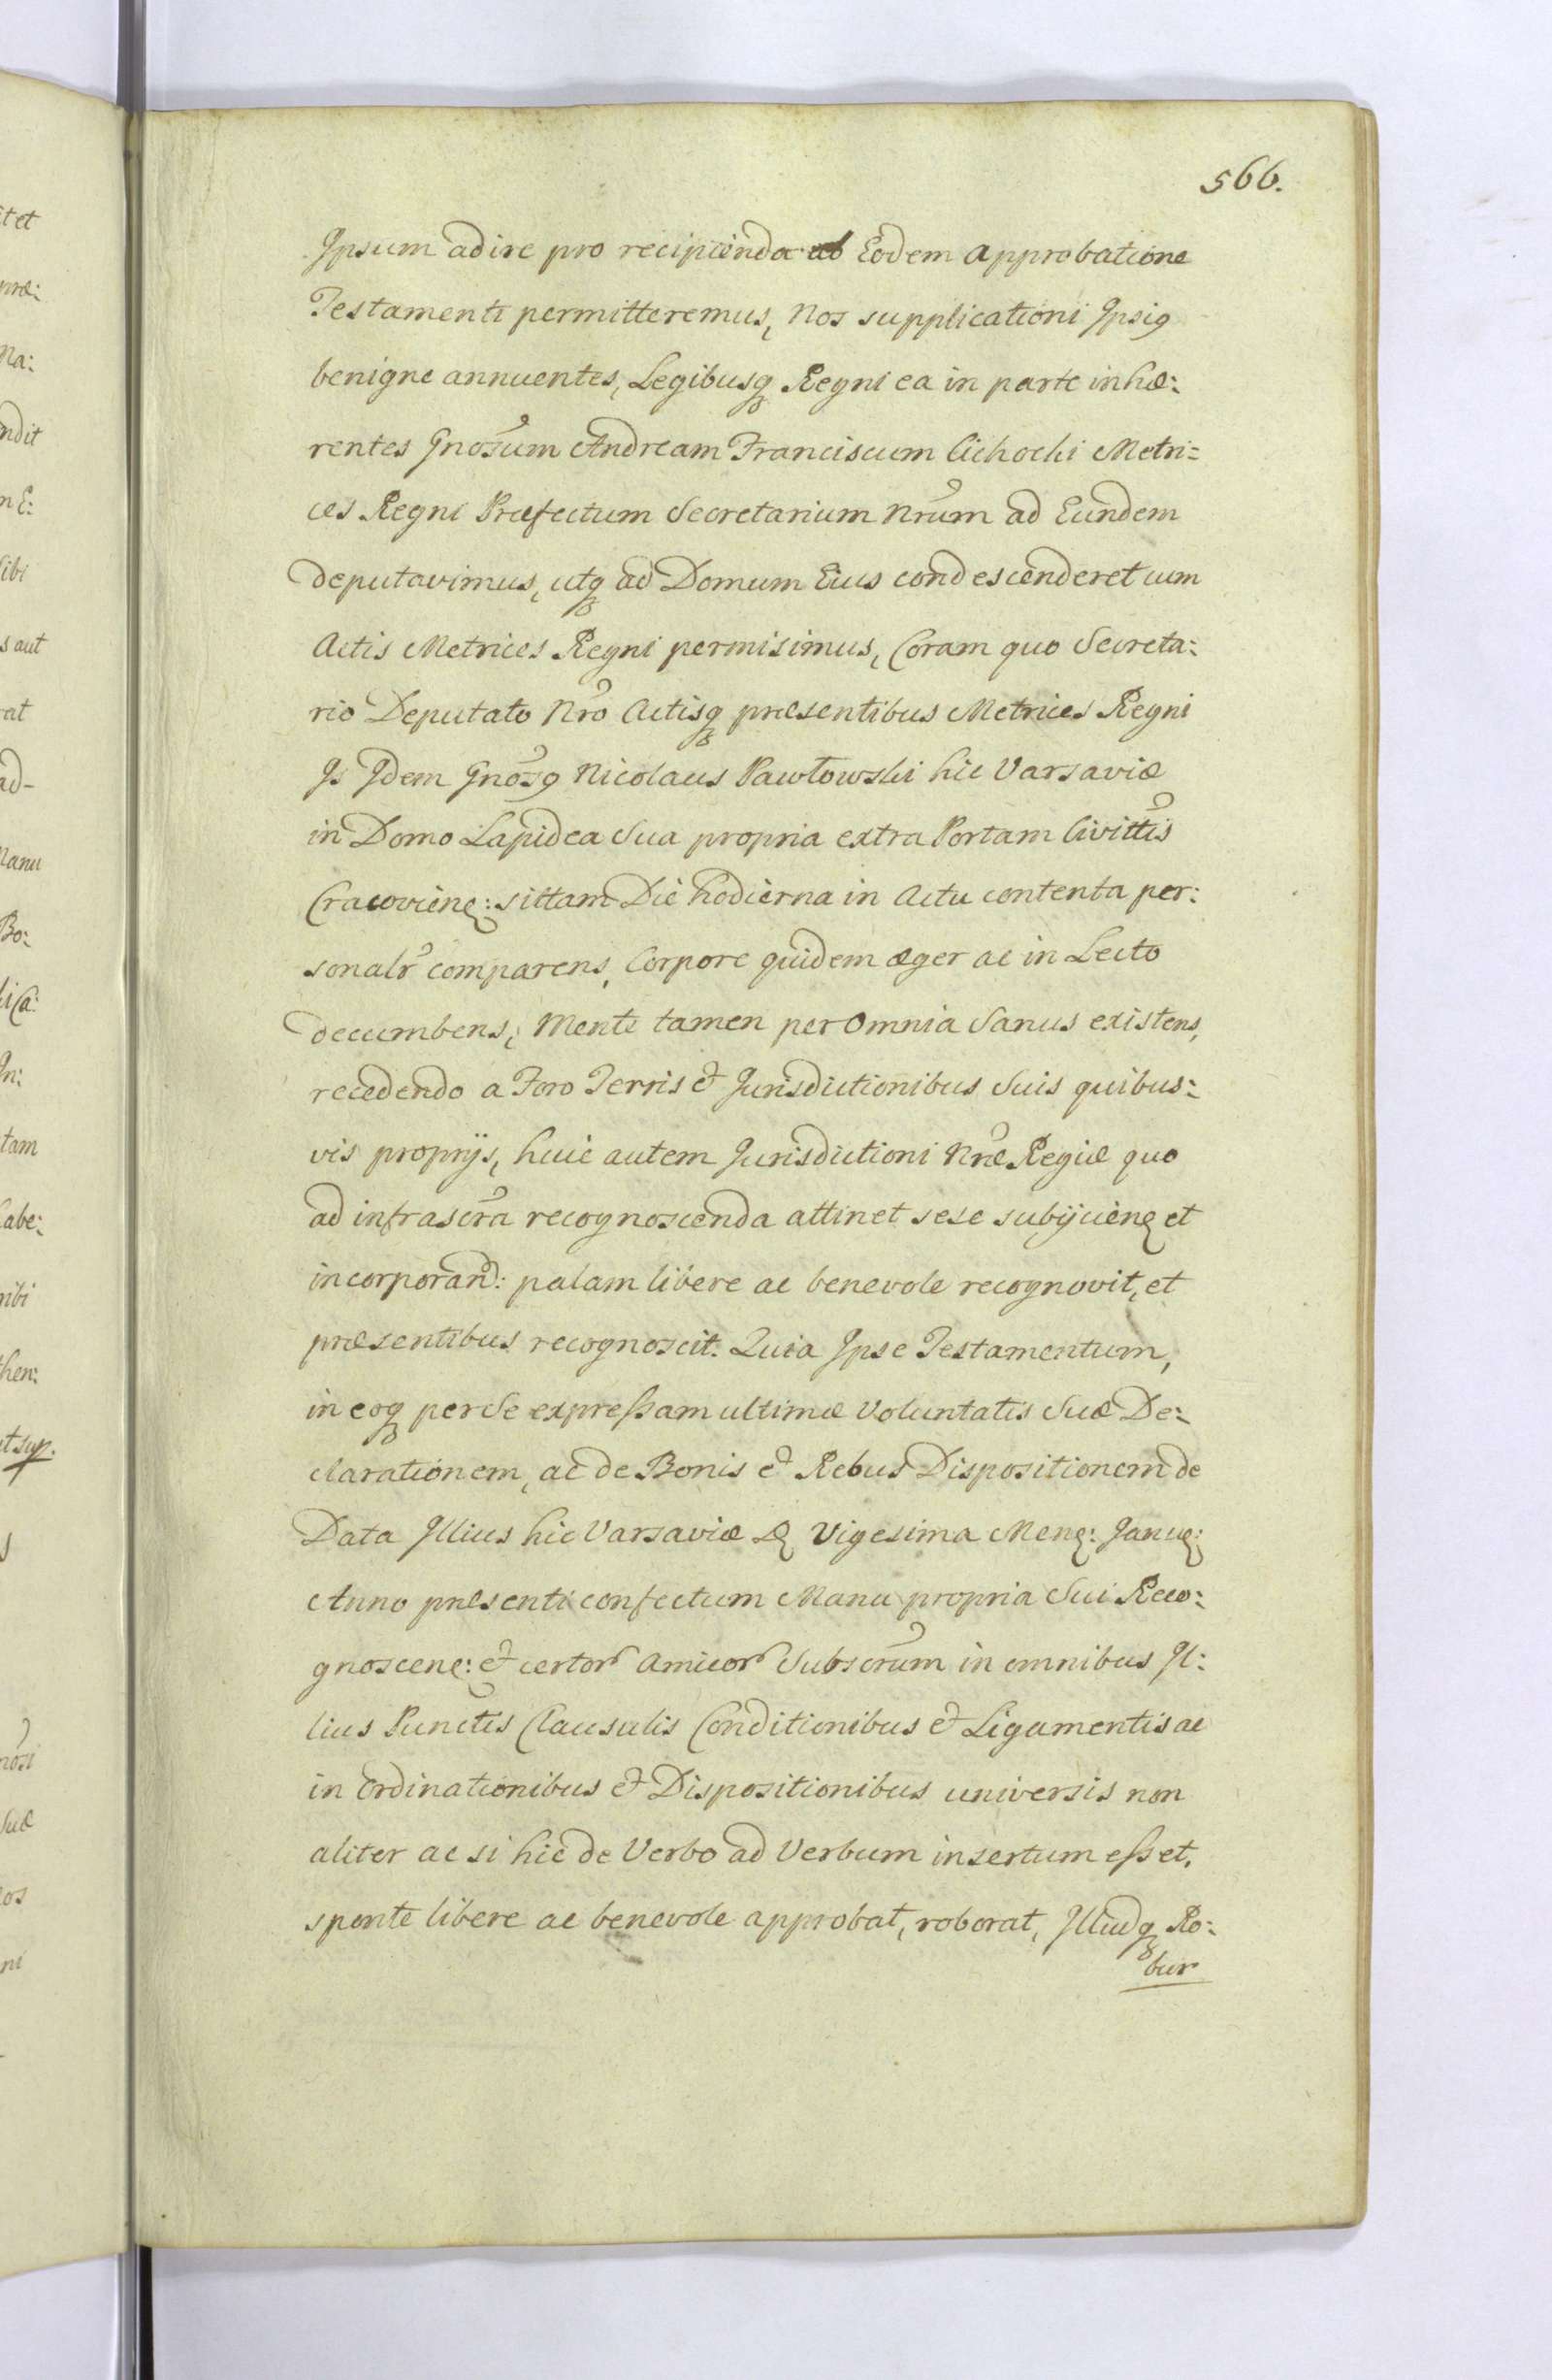 566.
Ipsum adire pro recipienda ab Eodem approbatione
Testamenti permitteremus, Nos supplicationi Ipsiꝰ
benigne annuentes, Legibusq Regni ea in parte inhæ:
rentes Gnosum Andream Franciscum Cichocki Metri=
ces Regni Præfectum Secretarium Nrum ad Eundem
deputavimus, utq ad Domum Eius condescenderet cum
Actis Metrices Regni permisimus, Coram quo Secreta:
rio Deputato Nro Actisq præsentibus Metrices Regni
Is Idem Gnosꝰ Nicolaus Pawłowski hic Varsaviæ
in Domo Lapidea Sua propria extra Portam Civittis
Cracovien: sittam Die hodierna in Actu contenta per:
sonalr comparens, Corpore quidem æger ac in Lecto
decumbens, Mente tamen per Omnia Sanus existens,
recedendo a Foro Terris et Jurisdictionibus Suis quibus:
vis proprijs, huic autem Jurisdictioni Nræ Regiæ quo
ad infrascra recognoscenda attinet sese subijcien et
incorporand: palam libere ac benevole recognovit, et
præsentibus recognoscit. Quia Ipse Testamentum,
in eoq per Se expressam ultimæ Voluntatis Suæ De:
clarationem, ac de Bonis et Rebus Dispositionem de
Data Illius hic Varsaviæ D Vigesima Men: Janu:
Anno præsenti confectum Manu propria Sui Reco:
gnoscen: et certor Amicor Subscrum in omnibus Il:
lius Punctis Clausulis Conditionibus et Ligamentis ac
in Ordinationibus et Dispositionibus universis non
aliter ac si hic de Verbo ad Verbum insertum esset,
sponte libere ac benevole approbat, roborat, Illudq Ro:
bur